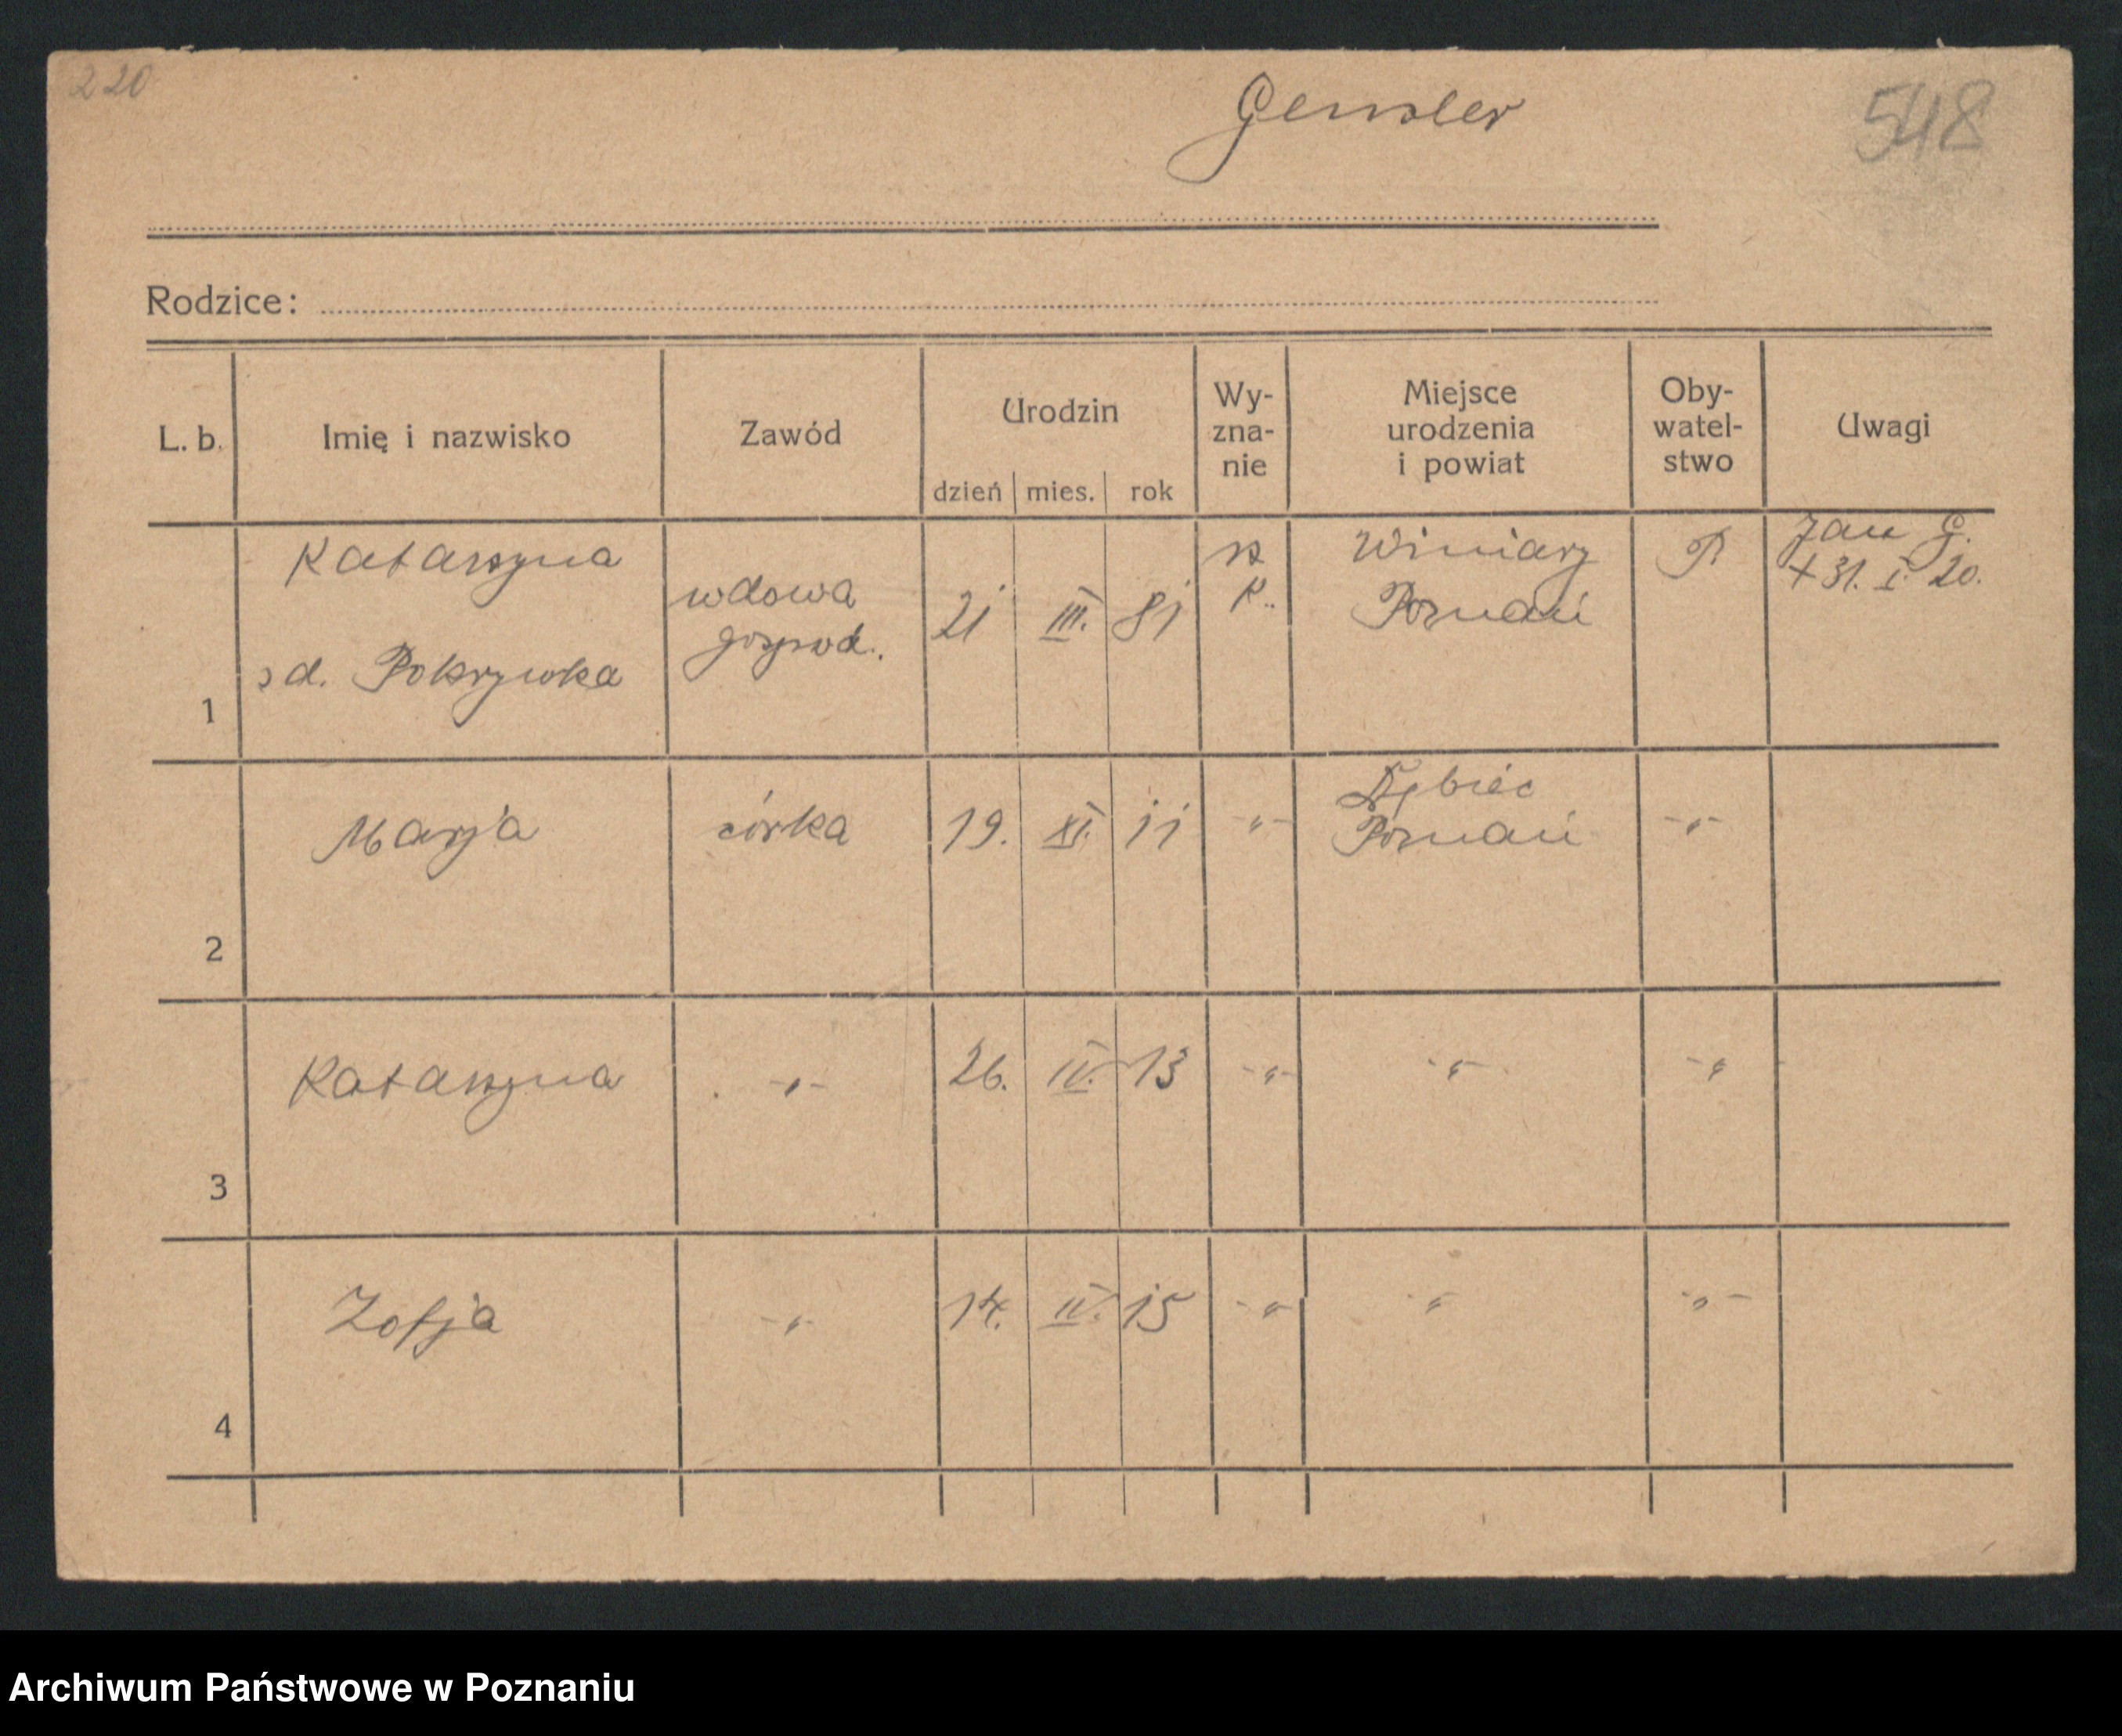 220
Gensler
548
Rodzice:
L. b. Imię i nazwisko Zawód Urodzin dzień mies. rok Wy-zna-nie Miejsce urodzenia i powiat Oby-watel-stwo Uwagi
Katarzyna
zd. Pokrzywka
wdowa
gospod.
21 III. 81
rz
k.
Winiary
Poznań
P.
Jan G.
+ 31. I. 20.
1
Marja córka 19. XI. 11 -"- Dębiec
Poznań -"-
2
Katarzyna -"- 26. IV. 13 -"- -"- -"-
3
Zofja -"- 14. IV. 15 -"- -"- -"-
4
Archiwum Państwowe w Poznaniu